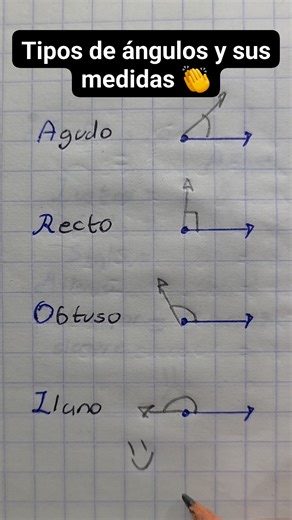 Tipos de ángulos y sus
medidas 👏
Agudo
Recto
Obtuso
Iluno